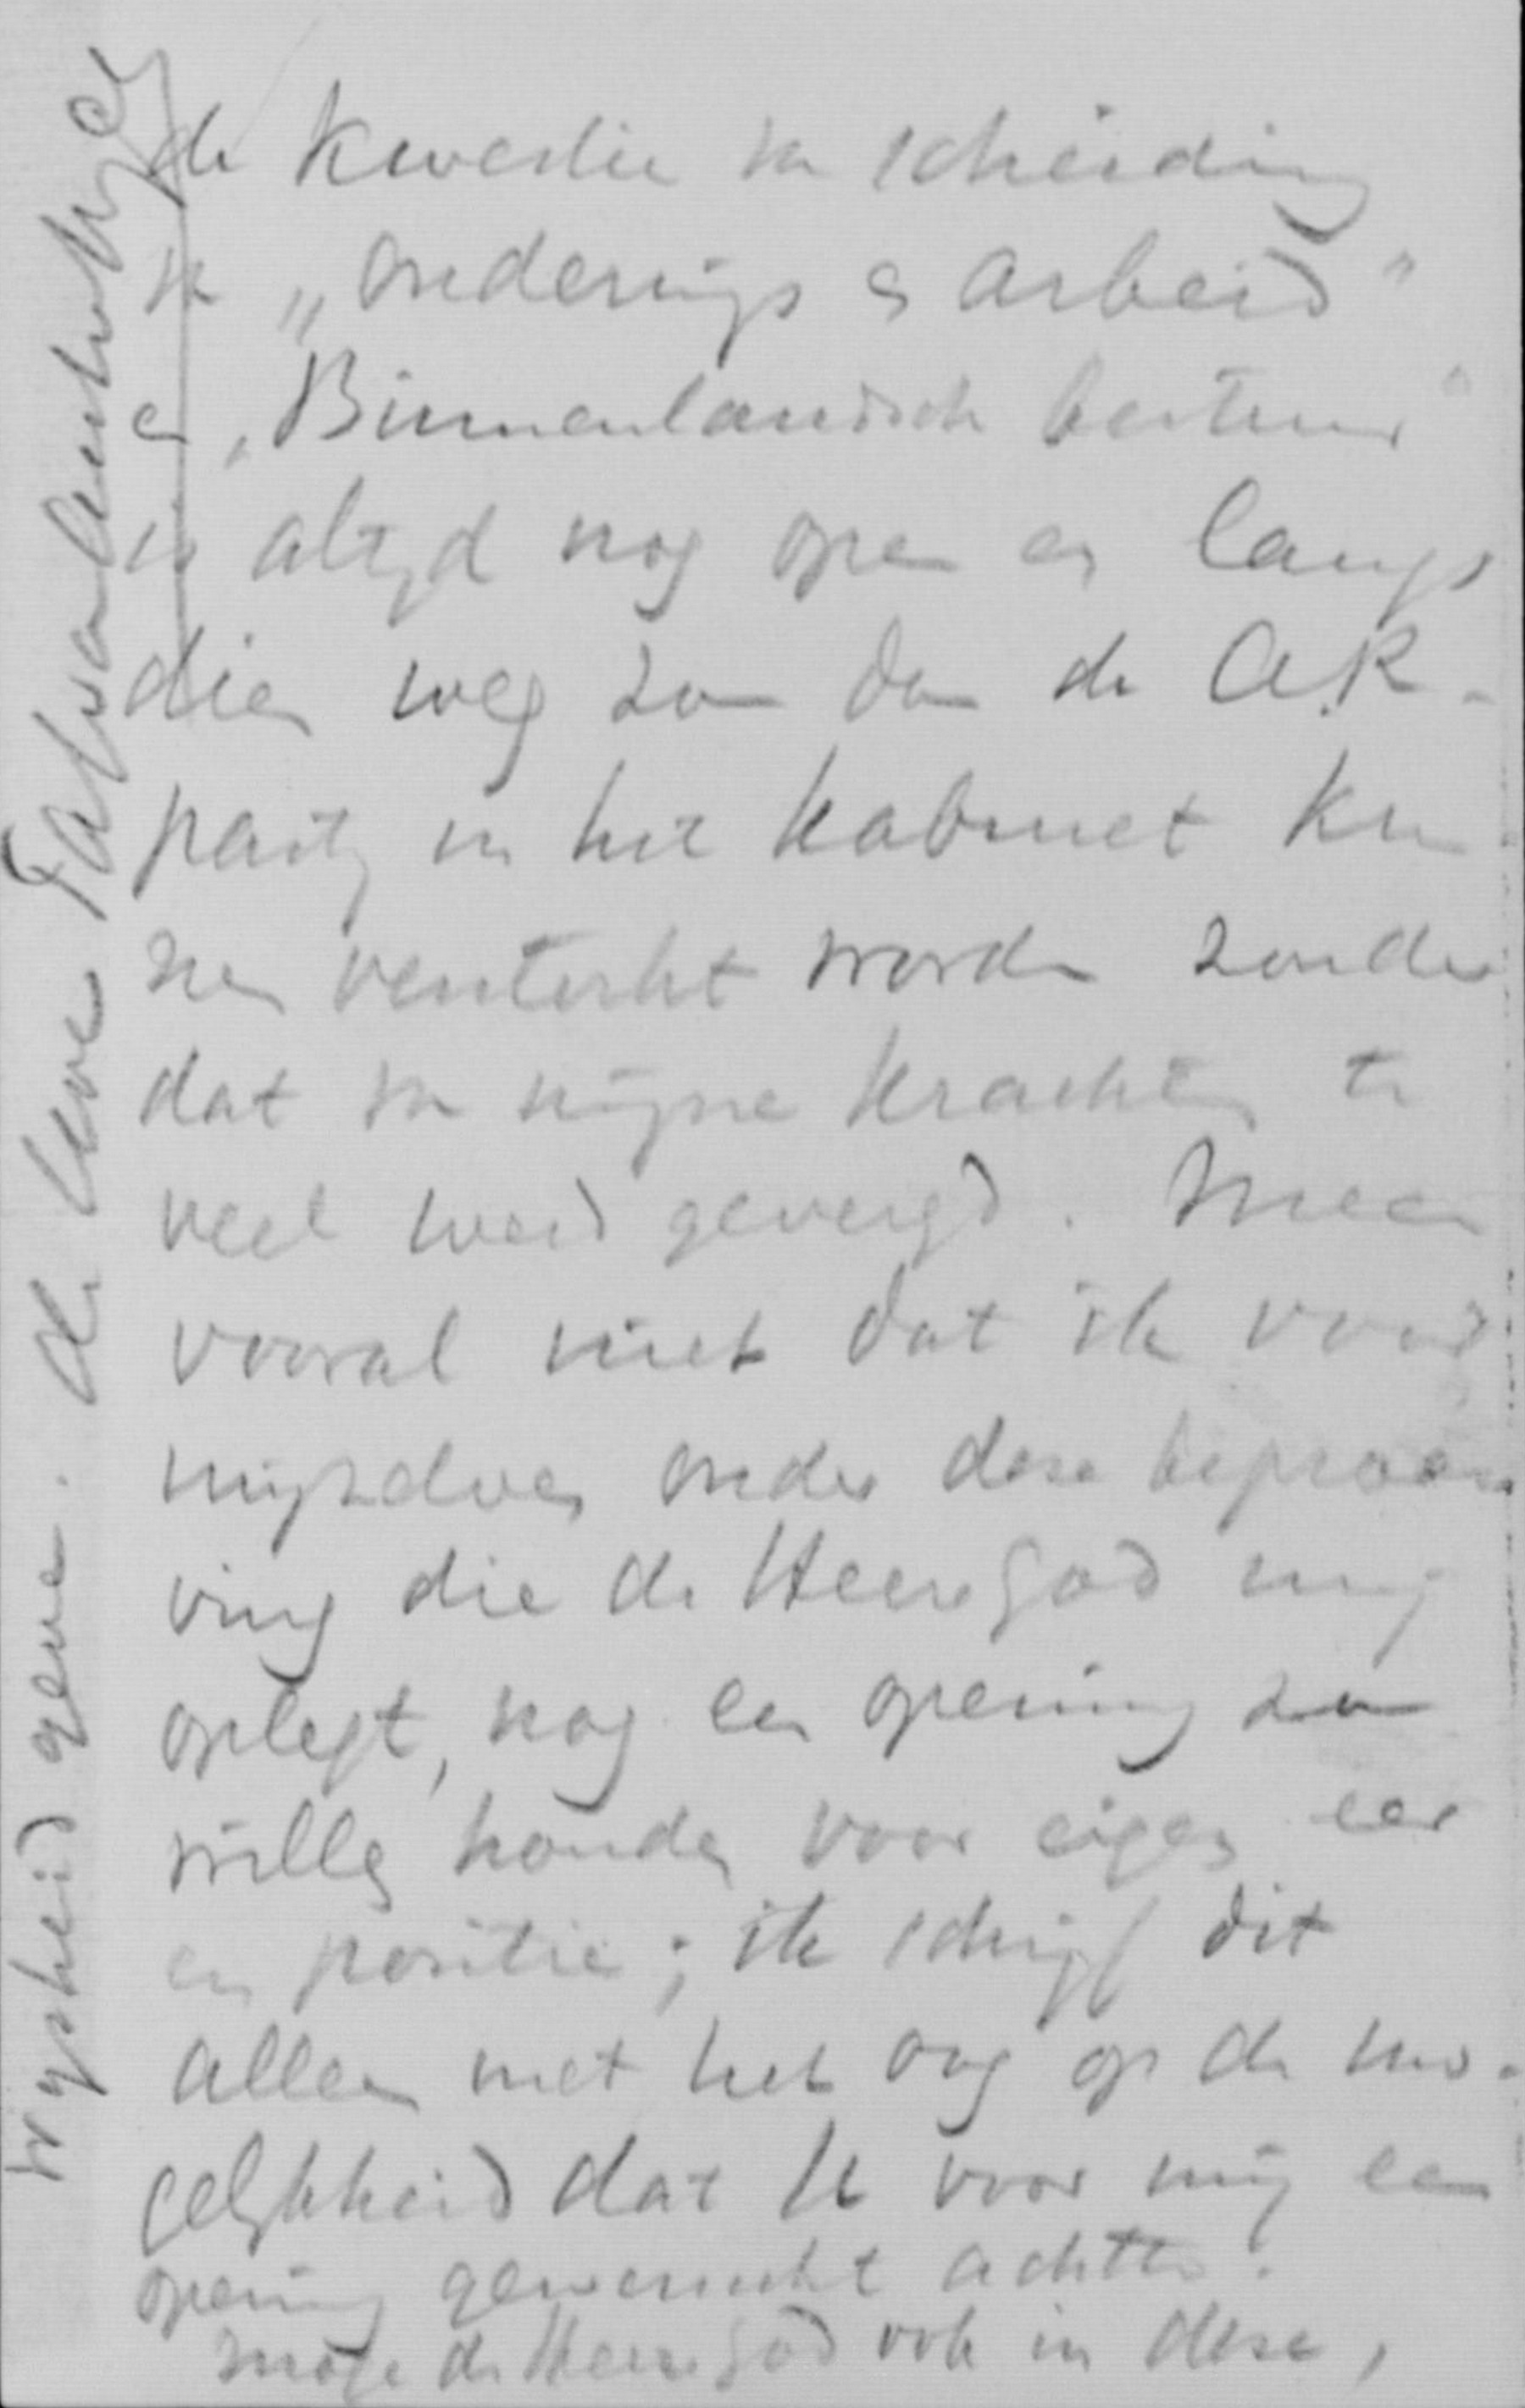 de kwestie van scheiding
van „Nederings en arbeid"
en „Binnenlandsch bestuur"
is altyd nog open en langs
dien weg zou dan de A.R.-
partij in het kabinet kun
nen versterkt worden zonder
dat van mijne krachten te
veel werd gevergd. Meen
vooral niet dat ik voor
mijzelven onder deze beproe
ving die de Heere God mij
oplegt, nog een opening zou
willen houden voor eigen eer
en positie; ik schrijf dit
alleen met het oog op de mo-
gelijkheid dat U voor mij een
opening gewenscht achtte.
Moge de Heere God ook in deze,
wysheid geven. de Uwe